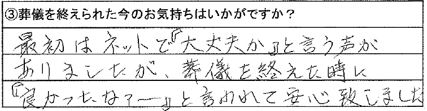 ③葬儀を終えられた今のお気持ちはいかがですか？
最初はネットで『大丈夫か』と言う声が
ありましたが、葬儀を終えた時に
『良かったなァー』と言われて安心致しました